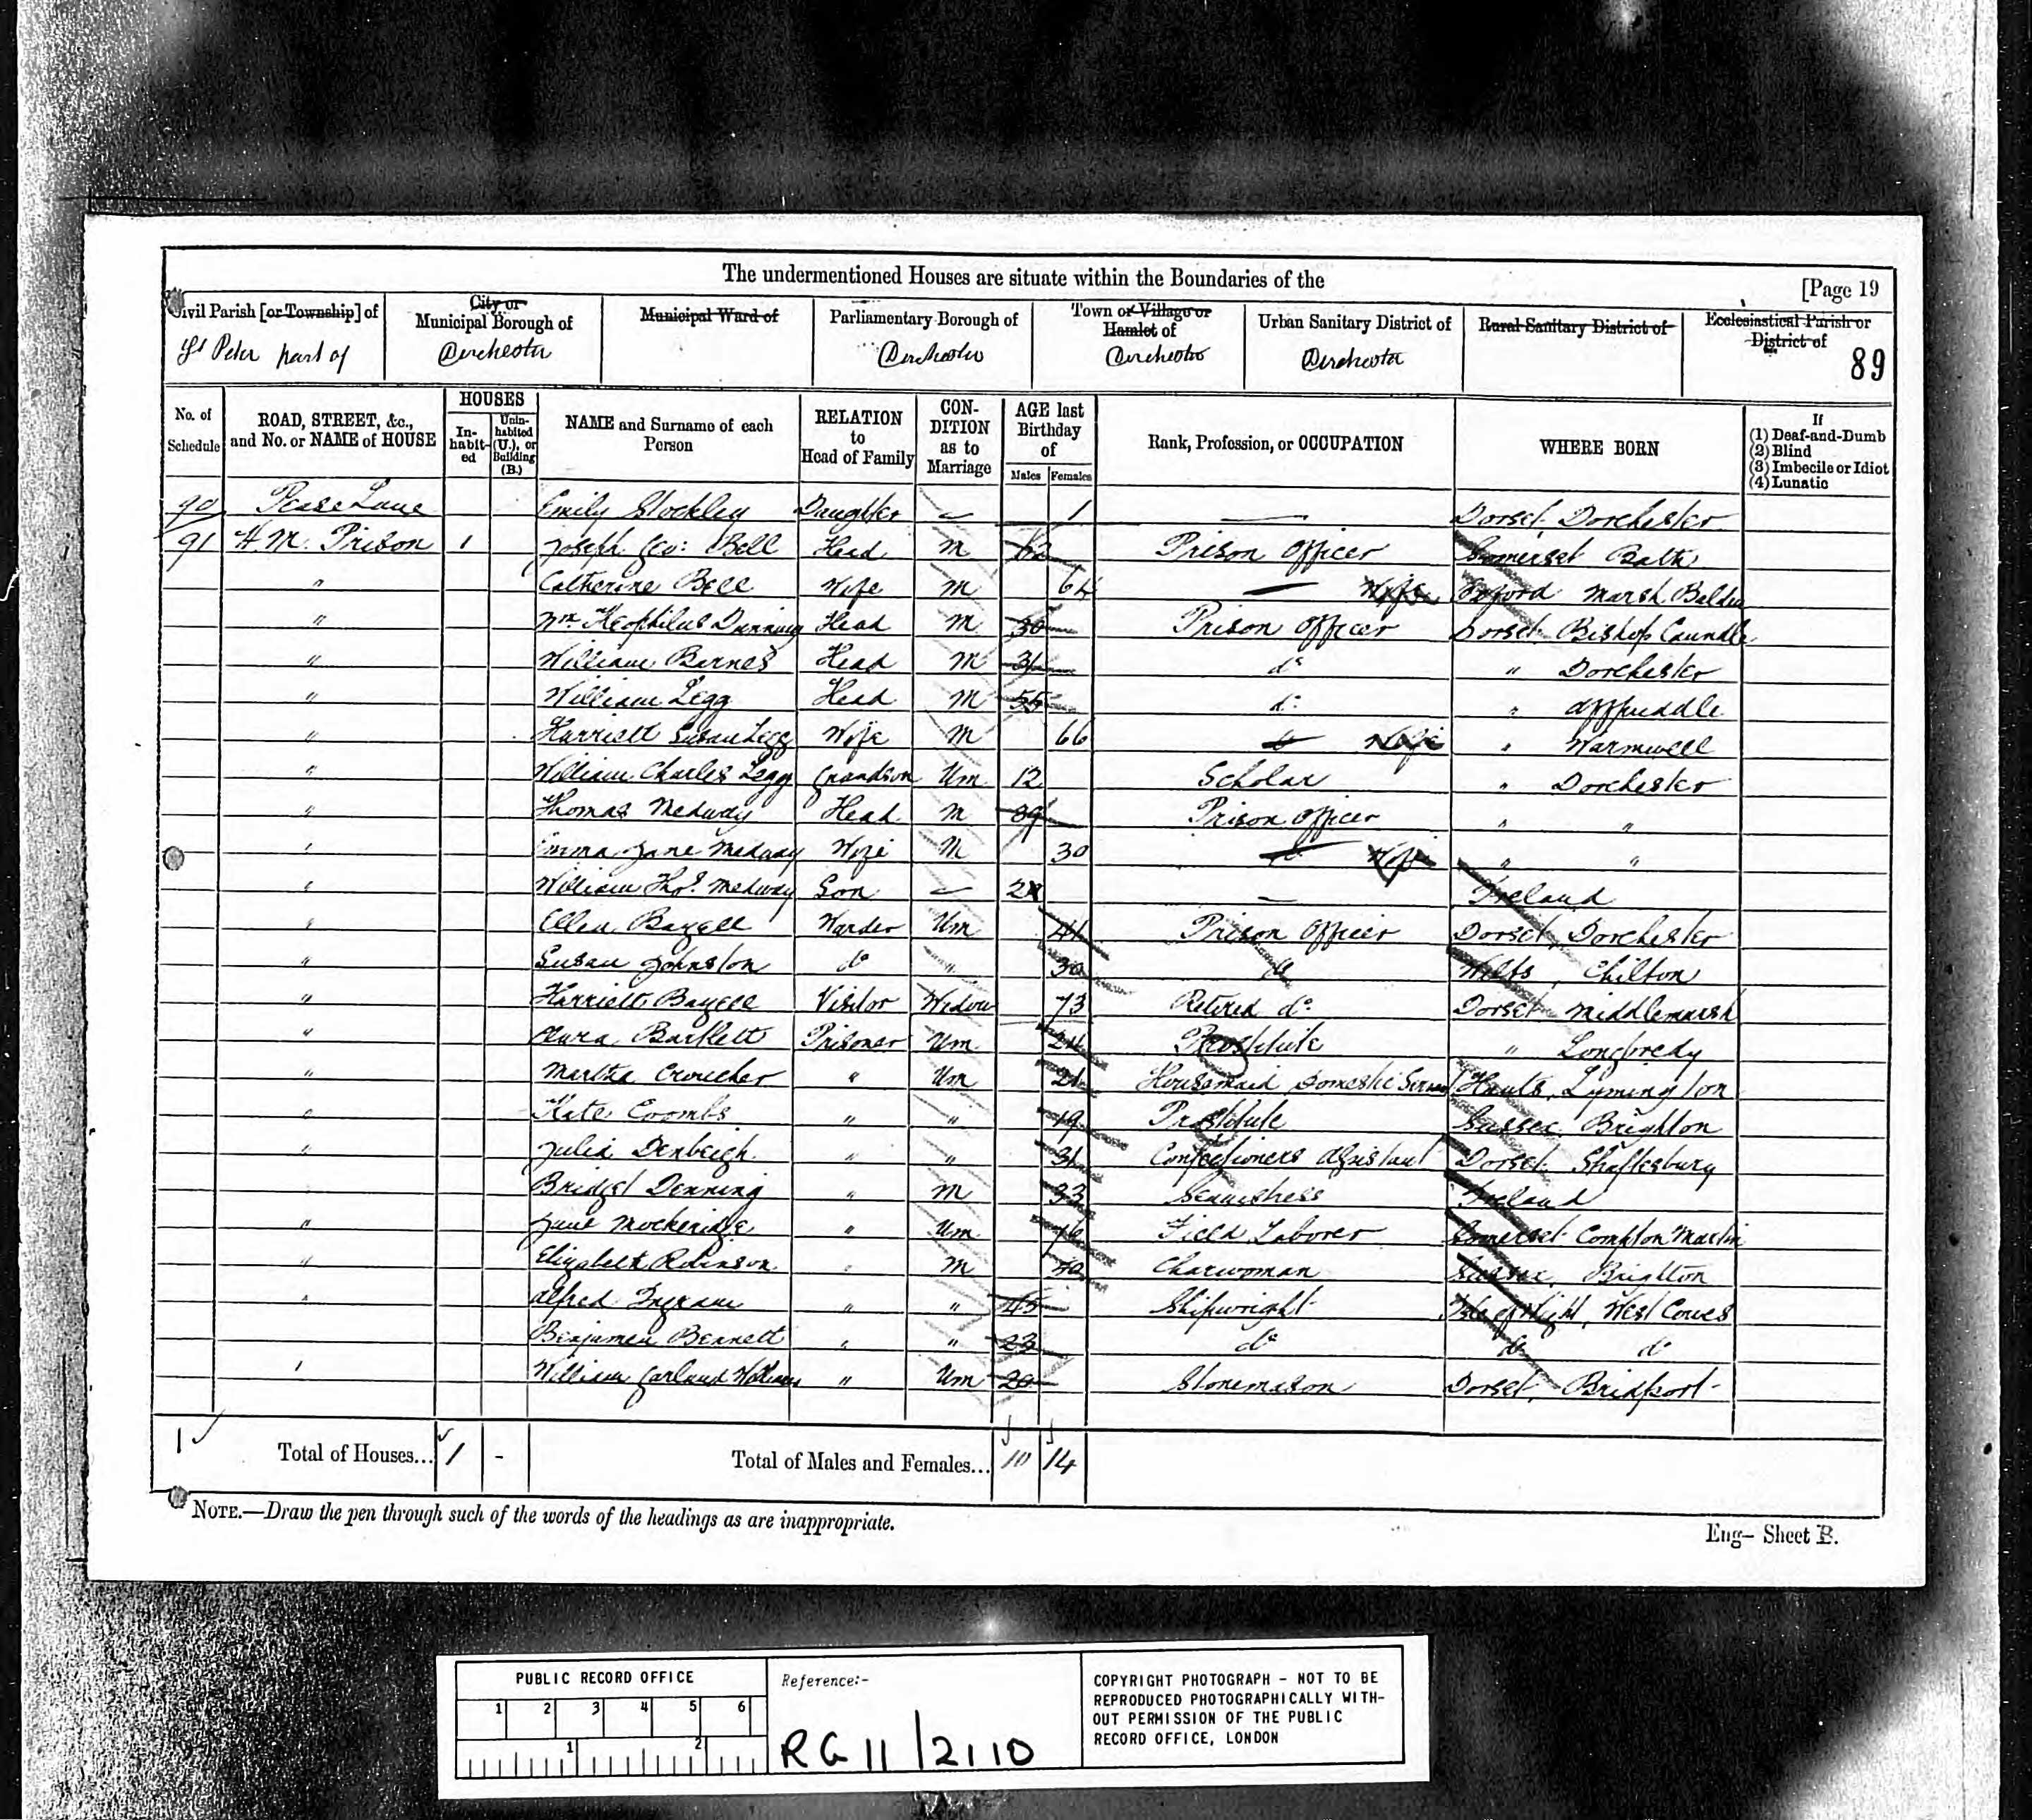 The undermentioned Houses are situate within the Boundaries of the
[Page 19
Civil Parish [or Township] of
City or Municipal Borough of
Municipal Ward of
Parliamentary Borough of
Town or Village or Hamlet of
Urban Sanitary District of
Rural Sanitary District of
Ecclesiastical Parish or District of
St Peter part of
Dorchester
Dorchester
Dorchester
Dorchester
89
No. of Schedule
ROAD, STREET, &c., and No. or NAME of HOUSE
HOUSES
In-habit-ed
Unin-habited (U.), or Building (B.)
NAME and Surname of each Person
RELATION to Head of Family
CON-DITION as to Marriage
AGE last Birthday of
Males
Females
Rank, Profession, or OCCUPATION
WHERE BORN
If
(1) Deaf-and-Dumb
(2) Blind
(3) Imbecile or Idiot
(4) Lunatic
90 Pease Lane Emily Stockley Daughter — 1 — Dorset Dorchester
91 H.M. Prison 1 Joseph Geo: Bell Head M 62 Prison Officer Somerset Bath
" Catherine Bell Wife M 64 — Wife Oxford Marsh Baldon
" Wm Theophilus Dunning Head M 30 Prison Officer Dorset Bishop Caundle
" William Barnes Head M 31 do " Dorchester
" William Legg Head M 55 do " Affpuddle
" Harriett Susan Legg Wife M 66 Wife " Warmwell
" William Charles Legg Grandson Um 12 Scholar " Dorchester
" Thomas Medway Head M 39 Prison Officer " "
" Emma Jane Medway Wife M 30 Wife " "
" William Thos. Medway Son — 2 — Ireland
" Ellen Bazell Warder Um 41 Prison Officer Dorset, Dorchester
" Susan Johnston do " 30 do Wilts, Chilton
" Harriett Bazell Visitor Widow 73 Retired do Dorset Middlemarsh
" Clara Bartlett Prisoner Um Prostitute " Longbredy
" Martha Croucher " Um 21 Housemaid Domestic Servant Hants, Lymington
" Kate Coombs " " 19 Prostitute Sussex, Brighton
" Julia Denbeigh " " 31 Confectioners Assistant Dorset Shaftesbury
" Bridget Denning " M 33 Seamstress Ireland
" Jane Mockeridge " Um 16 Field Laborer Somerset Compton Martin
" Elizabeth Robinson " M 40 Charwoman Sussex, Brighton
" Alfred Ingram " " 45 Shipwright Isle of Wight, West Cowes
" Benjamin Bennett " " 23 do do do
" William Garland Williams " Um 20 Stonemason Dorset, Bridport
1 Total of Houses... 1 - Total of Males and Females... 10 14
NOTE.—Draw the pen through such of the words of the headings as are inappropriate.
Eng— Sheet B.
PUBLIC RECORD OFFICE
1 2 3 4 5 6
1 2
Reference:-
RG 11 / 2110
COPYRIGHT PHOTOGRAPH - NOT TO BE
REPRODUCED PHOTOGRAPHICALLY WITH-
OUT PERMISSION OF THE PUBLIC
RECORD OFFICE, LONDON